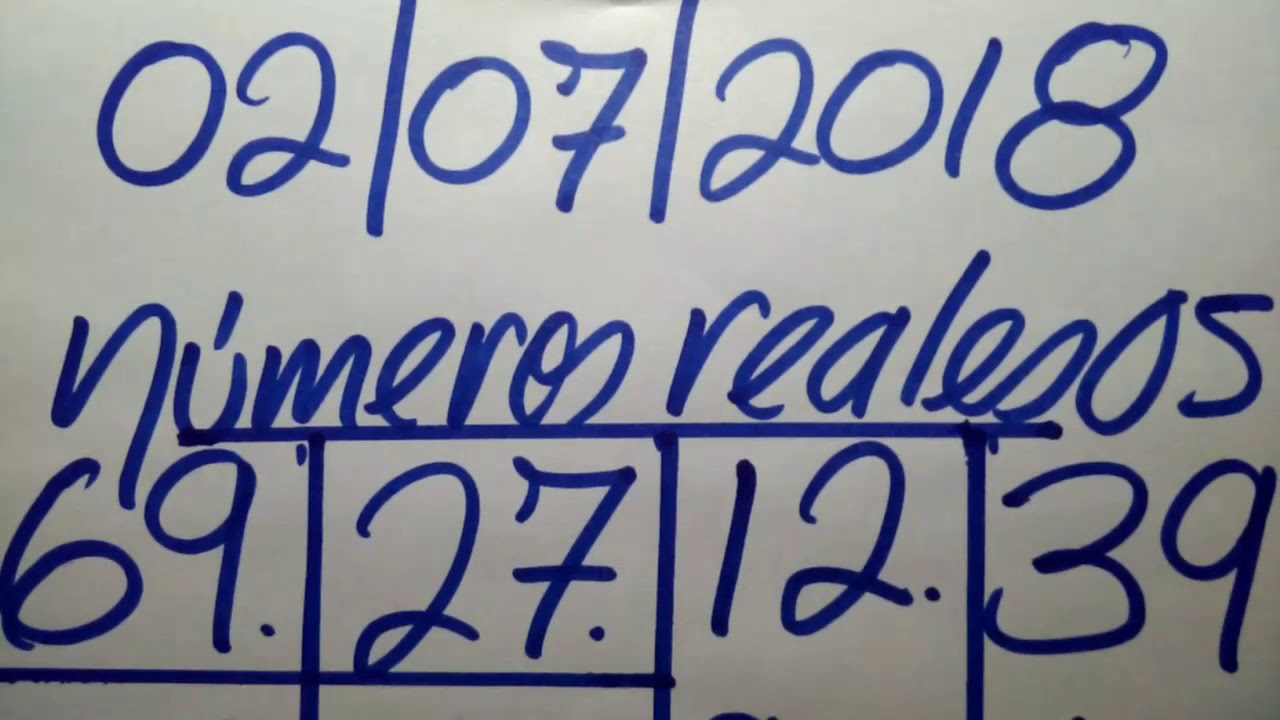 02/07/2018
números realesos
69. 27. 12. 39